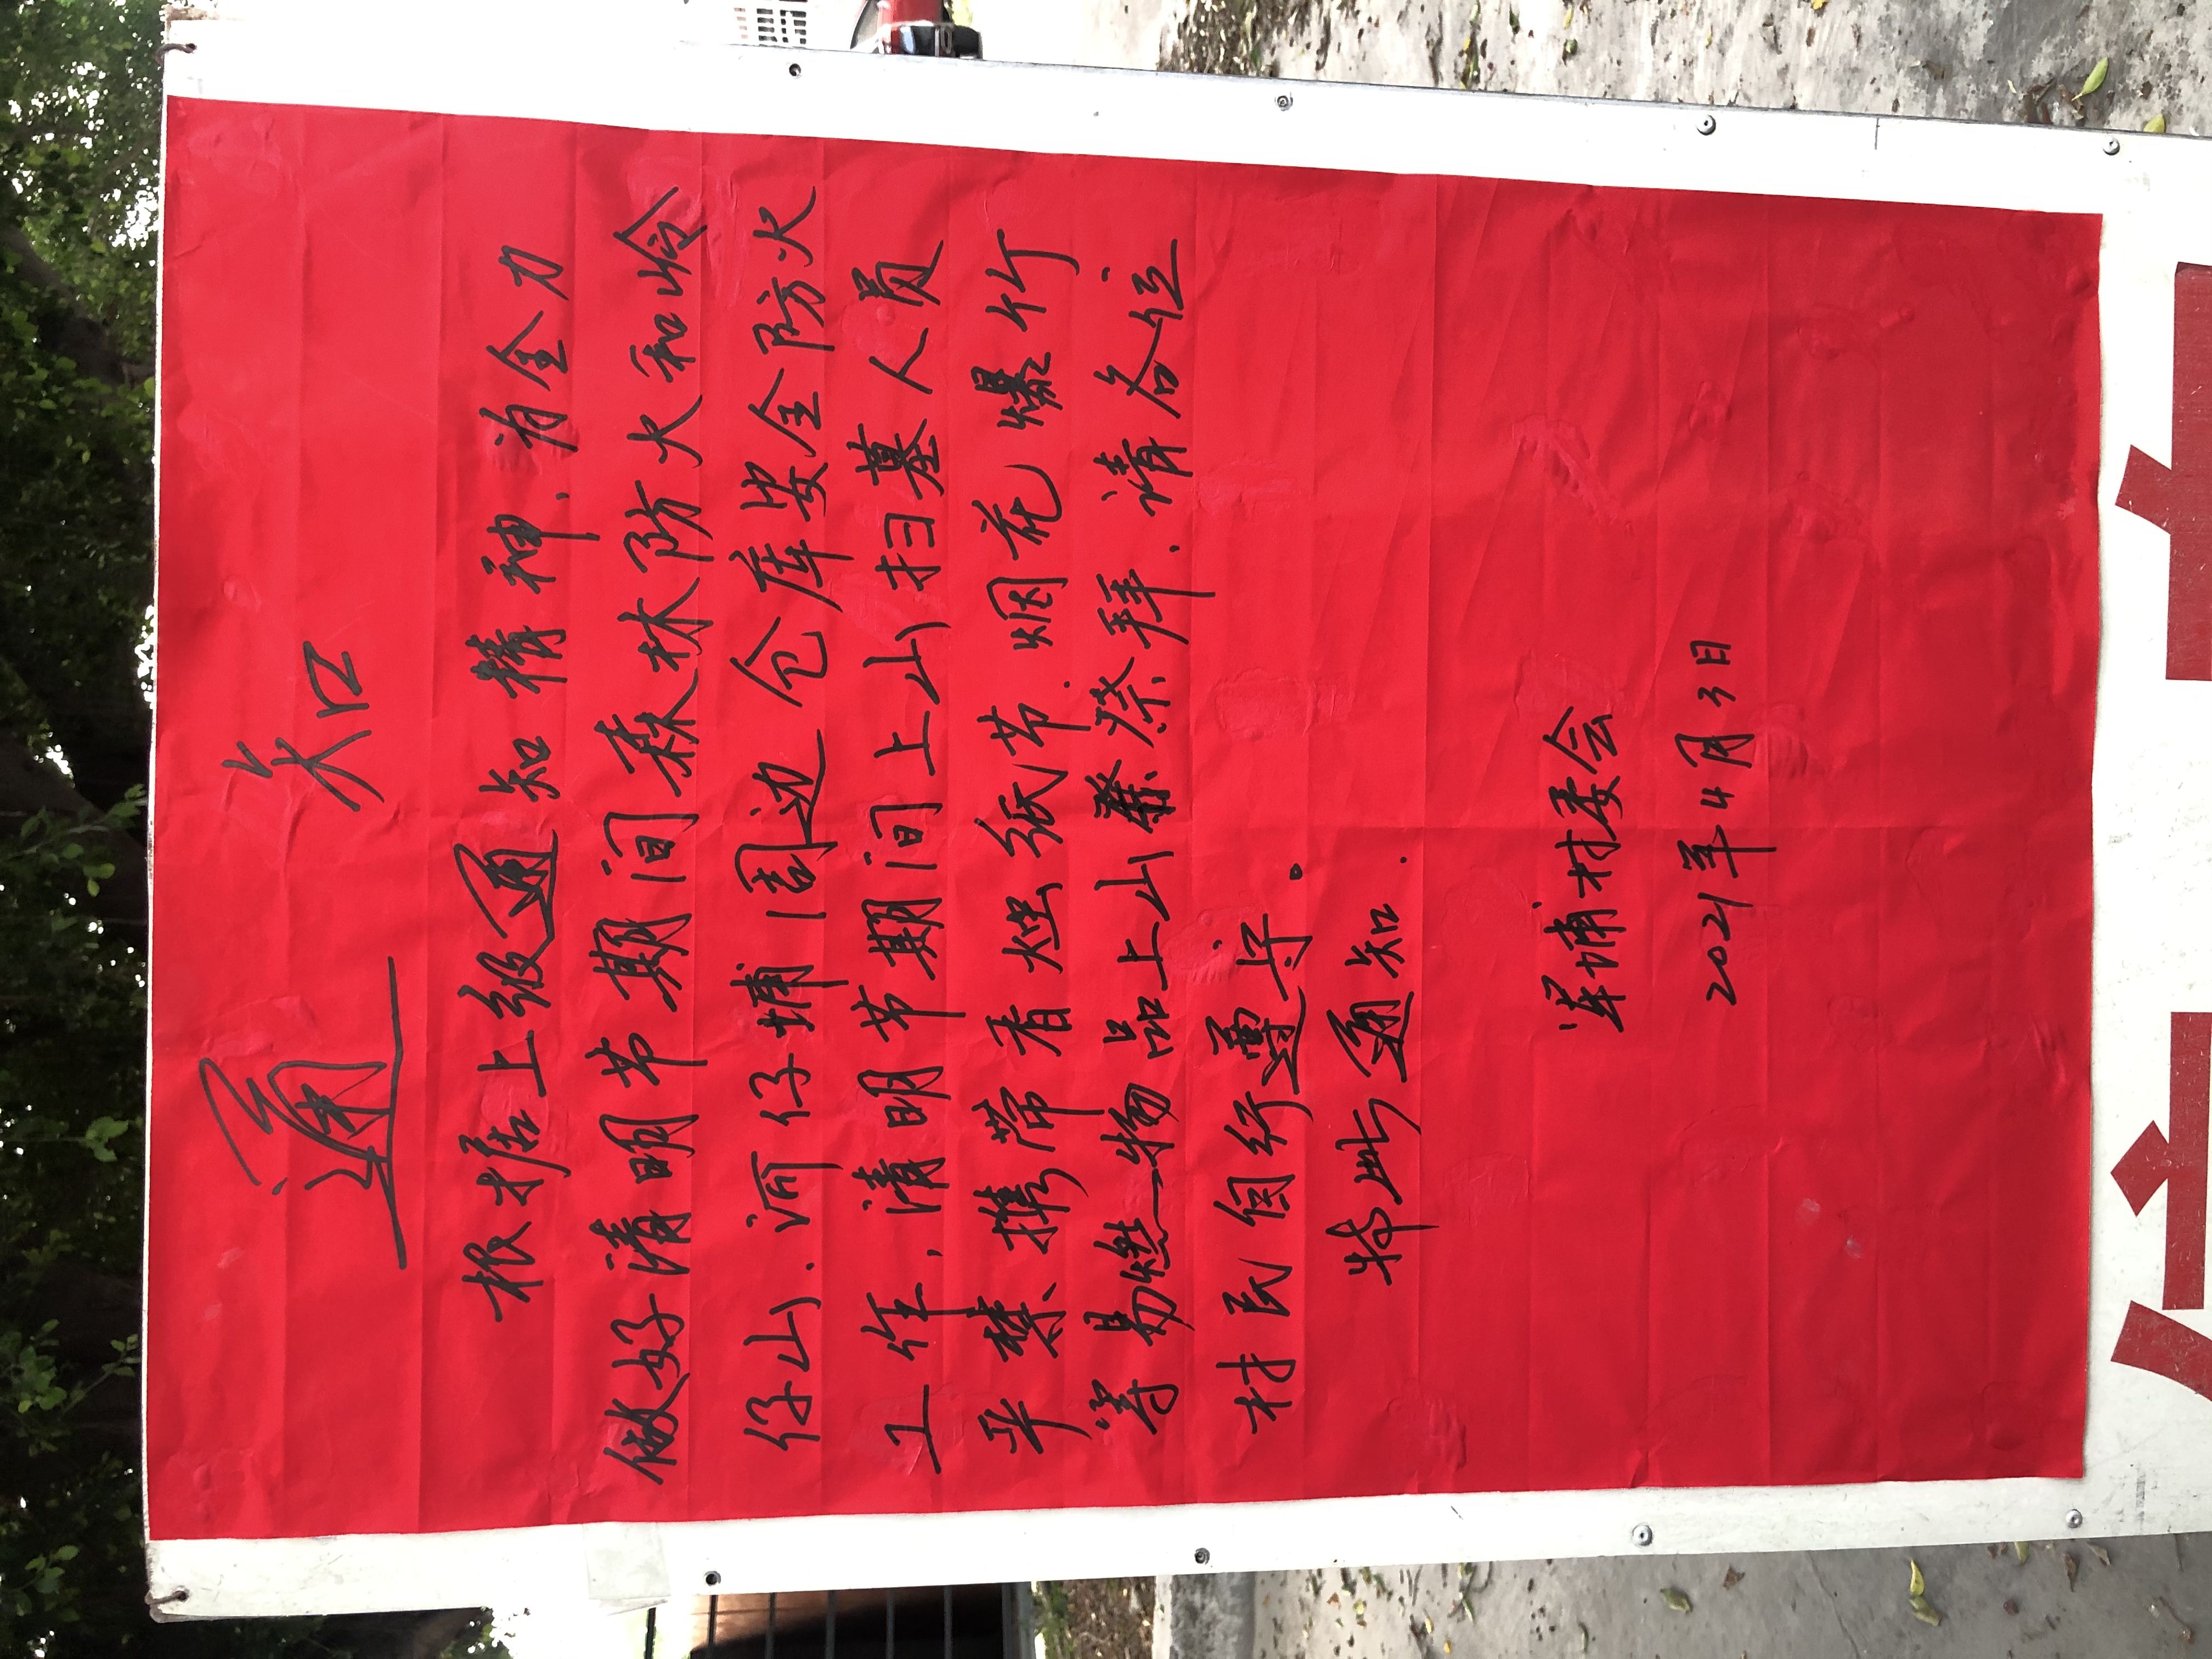 通知
根据上级通知精神、为全力
做好清明节期间森林防火和岭
仔山、河仔埔周边仓库安全防火
工作，清明节期间上山扫墓人员
严禁携带香烛纸币、烟花爆竹
等易燃物品上山祭拜、请各位
村民自行遵守。
特此通知.
埔村委会
2021年4月3日